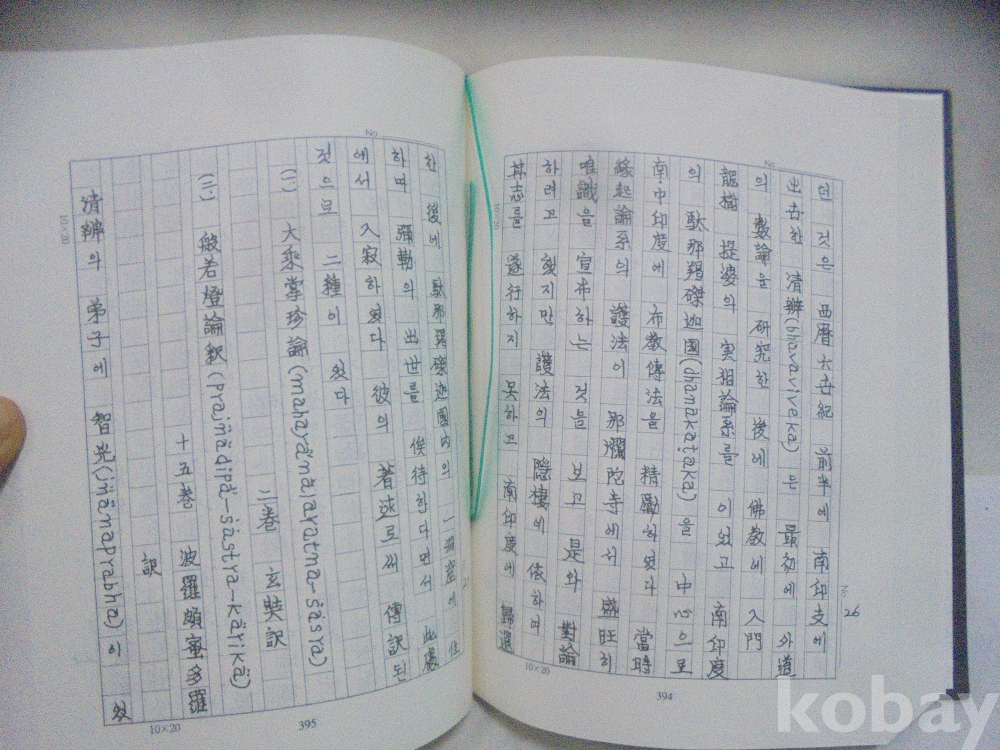 던 것은 西曆 六世紀 前半에 南印支에
出世한 清辨(bhavaviveka)은 最初에 外道
의 數論을 研究한 後에 佛敎에 入門
龍樹 提婆의 実相論系를 이었고 南印度
의 馱那羯磔迦國(dhanakaṭaka)을 中心으로
南中印度에 布敎傳法을 精勵하였다 當時
緣起論系의 護法이 那爛陀寺에서 盛旺히
唯識을 宣布하는 것을 보고 是와 對論
하려고 했지만 護法의 隱棲에 依하여
其志를 遂行하지 못하고 南印度에 歸還
26
No
10×20
394
한 後에 馱那羯磔迦國內의 一 에 住
하며 彌勒의 出世를 俟待한다면서 此處
에서 入寂하였다 彼의 著述로써 傳訳된
것으로 二種이 있다
(一) 大乘掌珍論(mahayānatālaratna-śāsra)
二卷 玄奘訳
(二) 般若燈論釈(Prajñādipā-śāstra-kārikā)
十五卷 波羅頗蜜多羅
訳
清辨의 弟子에 智光(jñānaprabha)이 있
No
10×20
395
kobay